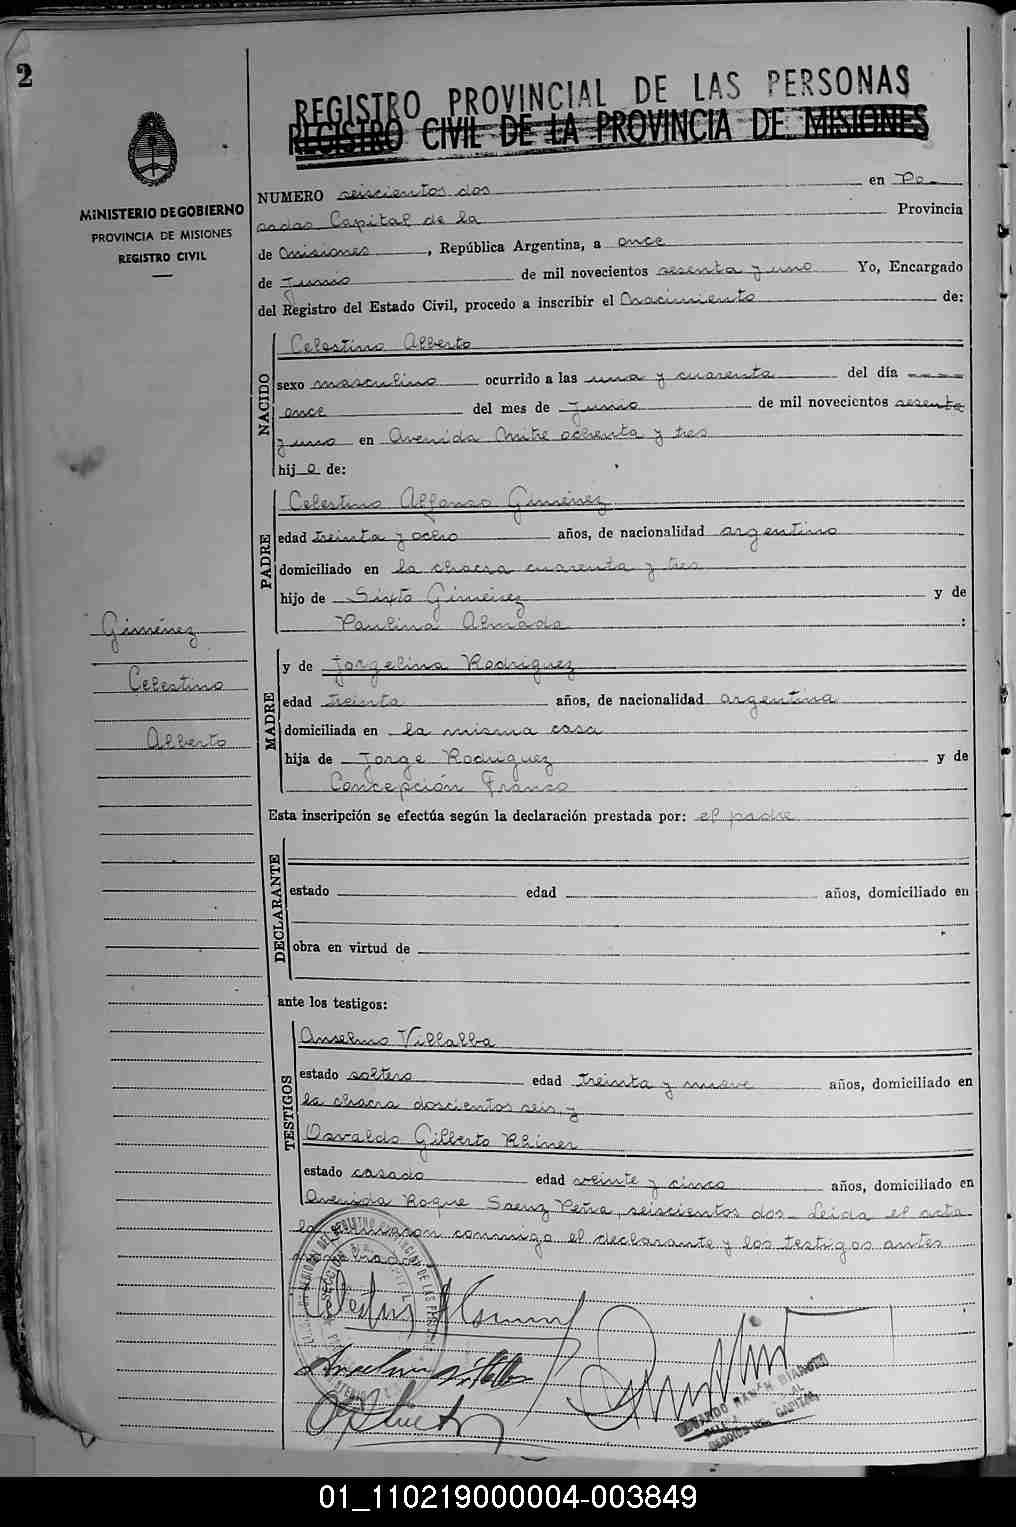 2
REGISTRO PROVINCIAL DE LAS PERSONAS
REGISTRO CIVIL DE LA PROVINCIA DE MISIONES
MINISTERIO DE GOBIERNO
PROVINCIA DE MISIONES
REGISTRO CIVIL
NUMERO seiscientos dos en Po-
sadas Capital de la Provincia
de Misiones, República Argentina, a once
de Junio de mil novecientos sesenta y uno Yo, Encargado
del Registro del Estado Civil, procedo a inscribir el Nacimiento de:
NACIDO
Celestino Alberto
sexo masculino ocurrido a las una y cuarenta del día
once del mes de Junio de mil novecientos sesenta
y uno en Avenida Mitre ochenta y tres
hijo de:
PADRE
Celestino Alfonso Giménez
edad treinta y ocho años, de nacionalidad argentino
domiciliado en la chacra cuarenta y tres
hijo de Sixto Giménez y de
Paulina Almada :
Giménez
Celestino
Alberto
MADRE
y de Jorgelina Rodriguez
edad treinta años, de nacionalidad argentina
domiciliada en la misma casa
hija de Jorge Rodriguez y de
Concepción Franco
Esta inscripción se efectúa según la declaración prestada por: el padre
DECLARANTE
estado edad años, domiciliado en
obra en virtud de
ante los testigos:
TESTIGOS
Anselmo Villalba
estado soltero edad treinta y nueve años, domiciliado en
la chacra doscientos seis, y
Osvaldo Gilberto Rhiner
estado casado edad veinte y cinco años, domiciliado en
Avenida Roque Saenz Peña, seiscientos dos- Leída el acta
la firmaron conmigo el declarante y los testigos antes
Anselmo Villalba
01_110219000004-003849